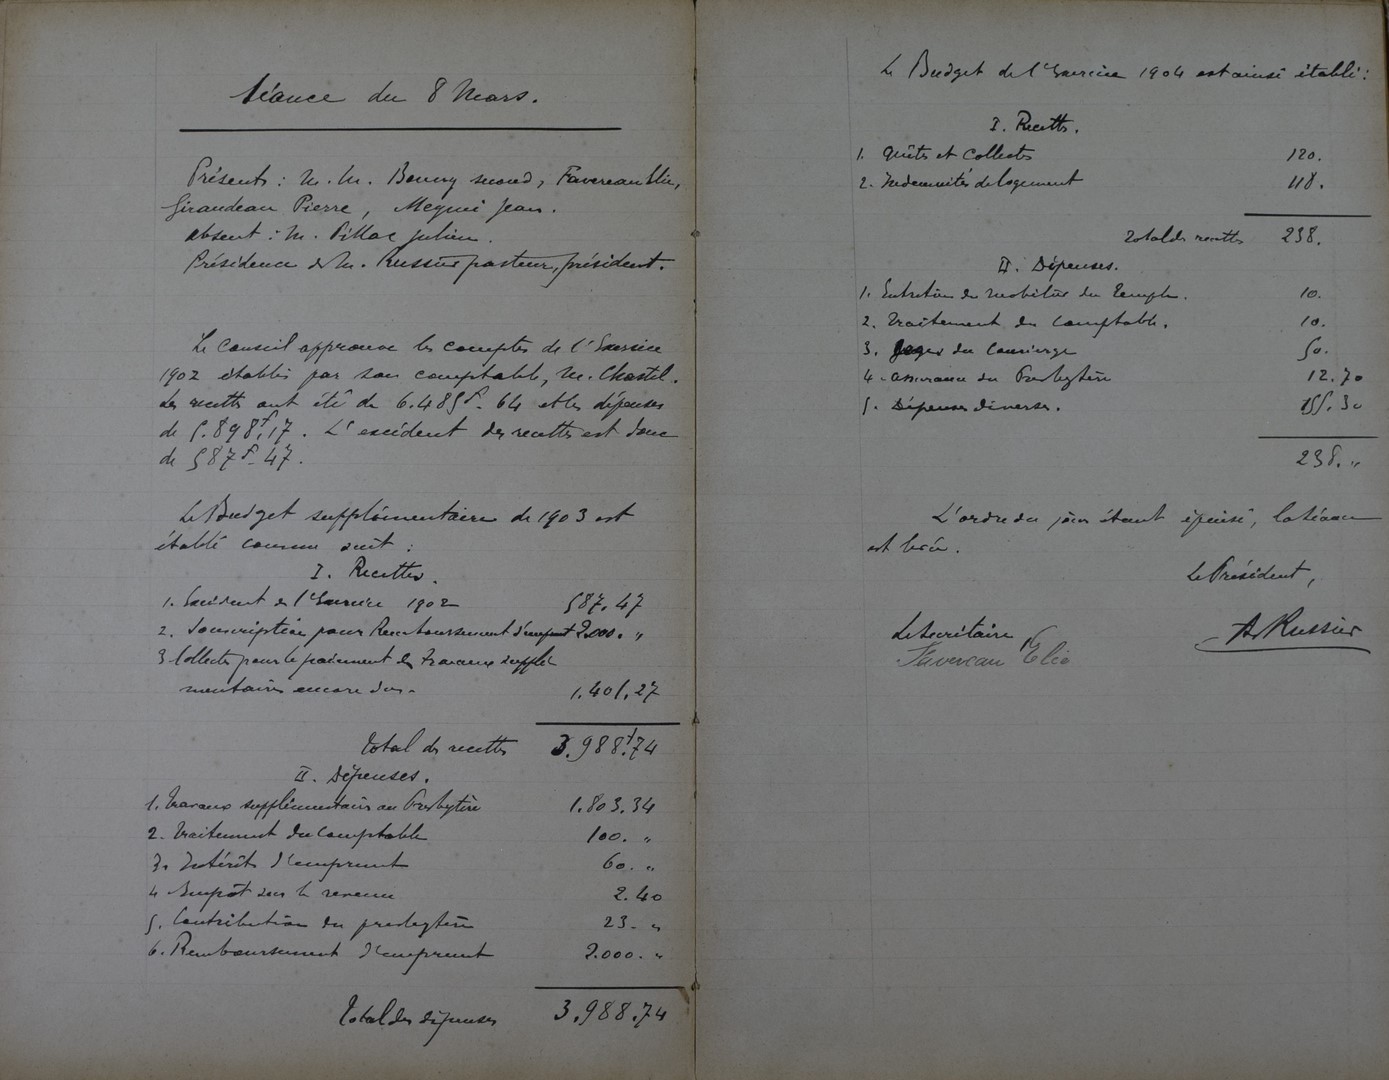 Séance du 8 Mars.
Présents : M. M. Bouny second, Favereau Elie,
Giraudeau Pierre, Meynié Jean.
Absent : M. Pillac Julien.
Présidence de M. Russier pasteur, président.
Le Conseil approuve les comptes de l'Exercice
1902 établis par son comptable, M. Chastel.
Les recettes ont été de 6.485f. 64 et les dépenses
de 5.898f.17. L'excédent des recettes est donc
de 587f. 47.
Le Budget supplémentaire de 1903 est
établi comme suit :
I. Recettes.
1. Excédent de l'Exercice 1902 587.47
2. Souscription pour Remboursement d'emprunt 2.000. "
3 Collectes pour le paiement des travaux supplé
mentaires encore dus. 1.401.27
Total des recettes 3.988f.74
II. Dépenses.
1. Travaux supplémentaires au Presbytère 1.803.34
2. Traitement du comptable 100. "
3. Intérêts d'emprunt 60. "
4 Impôt sur le revenu 2.40
5. Contribution du presbytère 23. "
6. Remboursement d'emprunt 2.000. "
Total des dépenses 3.988.74
Le Budget de l'Exercice 1904 est ainsi établi :
I. Recettes.
1. Quêtes et Collectes 120.
2. Indemnités de logement 118.
Total des recettes 238.
II. Dépenses.
1. Entretien du mobilier du Temple. 10.
2. Traitement du comptable. 10.
3. Gages du Concierge 50.
4. Assurance du Presbytère 12.70
5. Dépenses diverses. 155.30
238. "
L'ordre du jour étant épuisé, la séance
est levée.
Le Président,
Le Secrétaire A. Russier
Favereau Elie